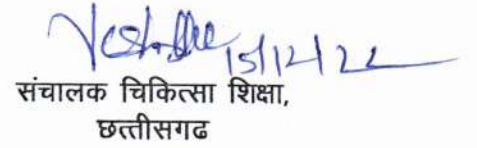 15/12/22
संचालक चिकित्सा शिक्षा,
छत्तीसगढ